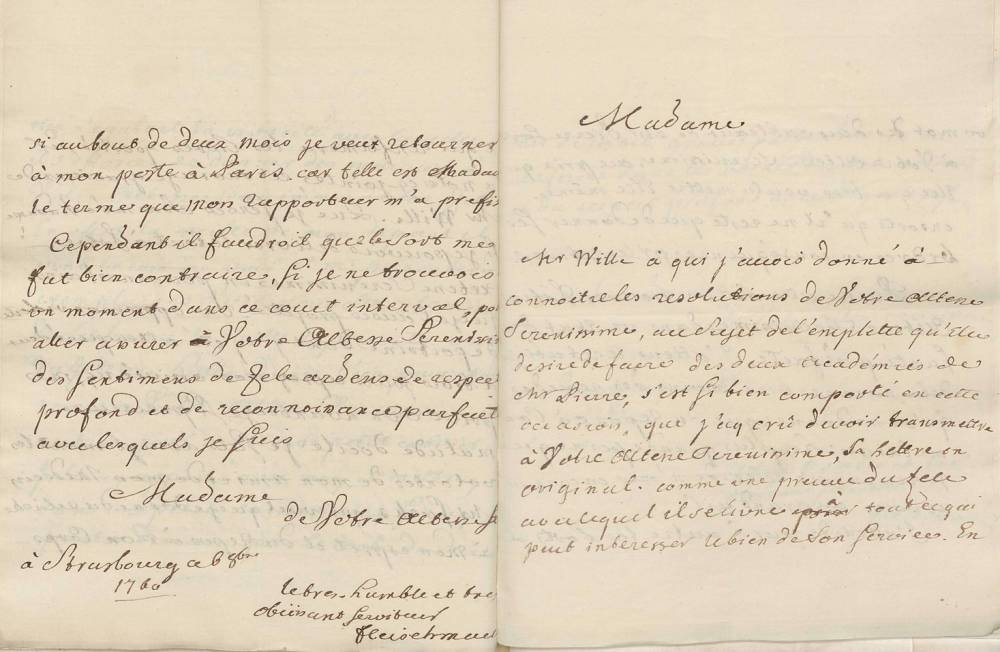 si au bout de deux mois je veux retourner
à mon poste à Paris. car telle est Madam
le terme que mon rapporteur m'a prefi
Cependant il faudroit que le sort me
fut bien contraire, si je ne trouvois
un moment dans ce court interval, po
aller assurer à Votre Altesse Serenissi
des sentimens de zele ardens de respec
profond et de reconnoissance parfait
avec lesquels je suis
Madame
de Votre Altesse
à Strasbourg ce 6 9bre
1760
le tres humble et tre
obeissant serviteur
Madame
Mr Wille à qui j'avois donné à
connoitre les resolutions de Votre Altesse
Serenissime, au sujet de l'emplette qu'elle
desire de faire des deux académies de
Mr Pierre, s'est si bien comporté en cette
occasion, que j'ay crû devoir transmettre
à Votre Altesse Serenissime, sa lettre en
original. comme une preuve du zele
avec lequel il se livre à tout ce qui
peut interesser le bien de son service. En